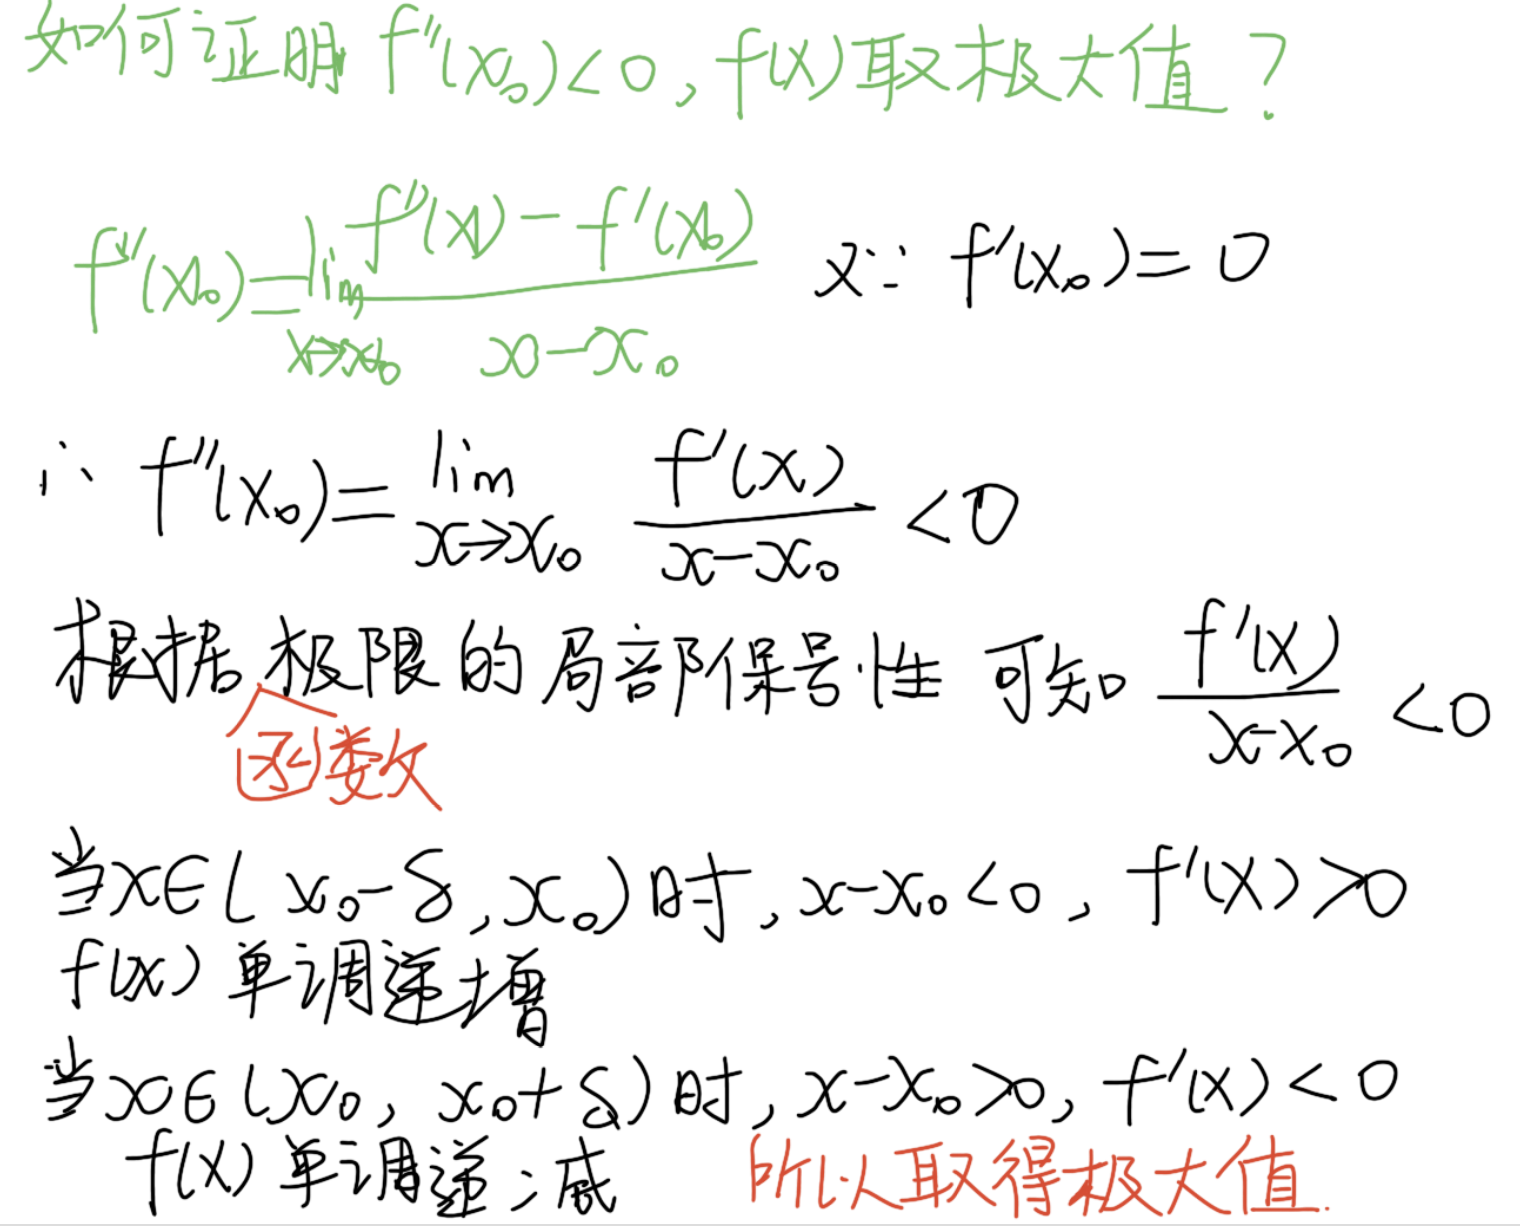 如何证明 f''(x₀)<0, f(x)取极大值?
f''(x₀)=lim x→x₀ (f'(x)-f'(x₀))/(x-x₀) 又∵ f'(x₀)=0
∴ f''(x₀)=lim x→x₀ f'(x)/(x-x₀) <0
根据极限的局部保号性 可知 f'(x)/(x-x₀) <0
函数
当x∈(x₀-δ,x₀)时,x-x₀<0, f'(x)>0
f(x)单调递增
当x∈(x₀, x₀+δ)时,x-x₀>0, f'(x)<0
f(x)单调递减 所以取得极大值.